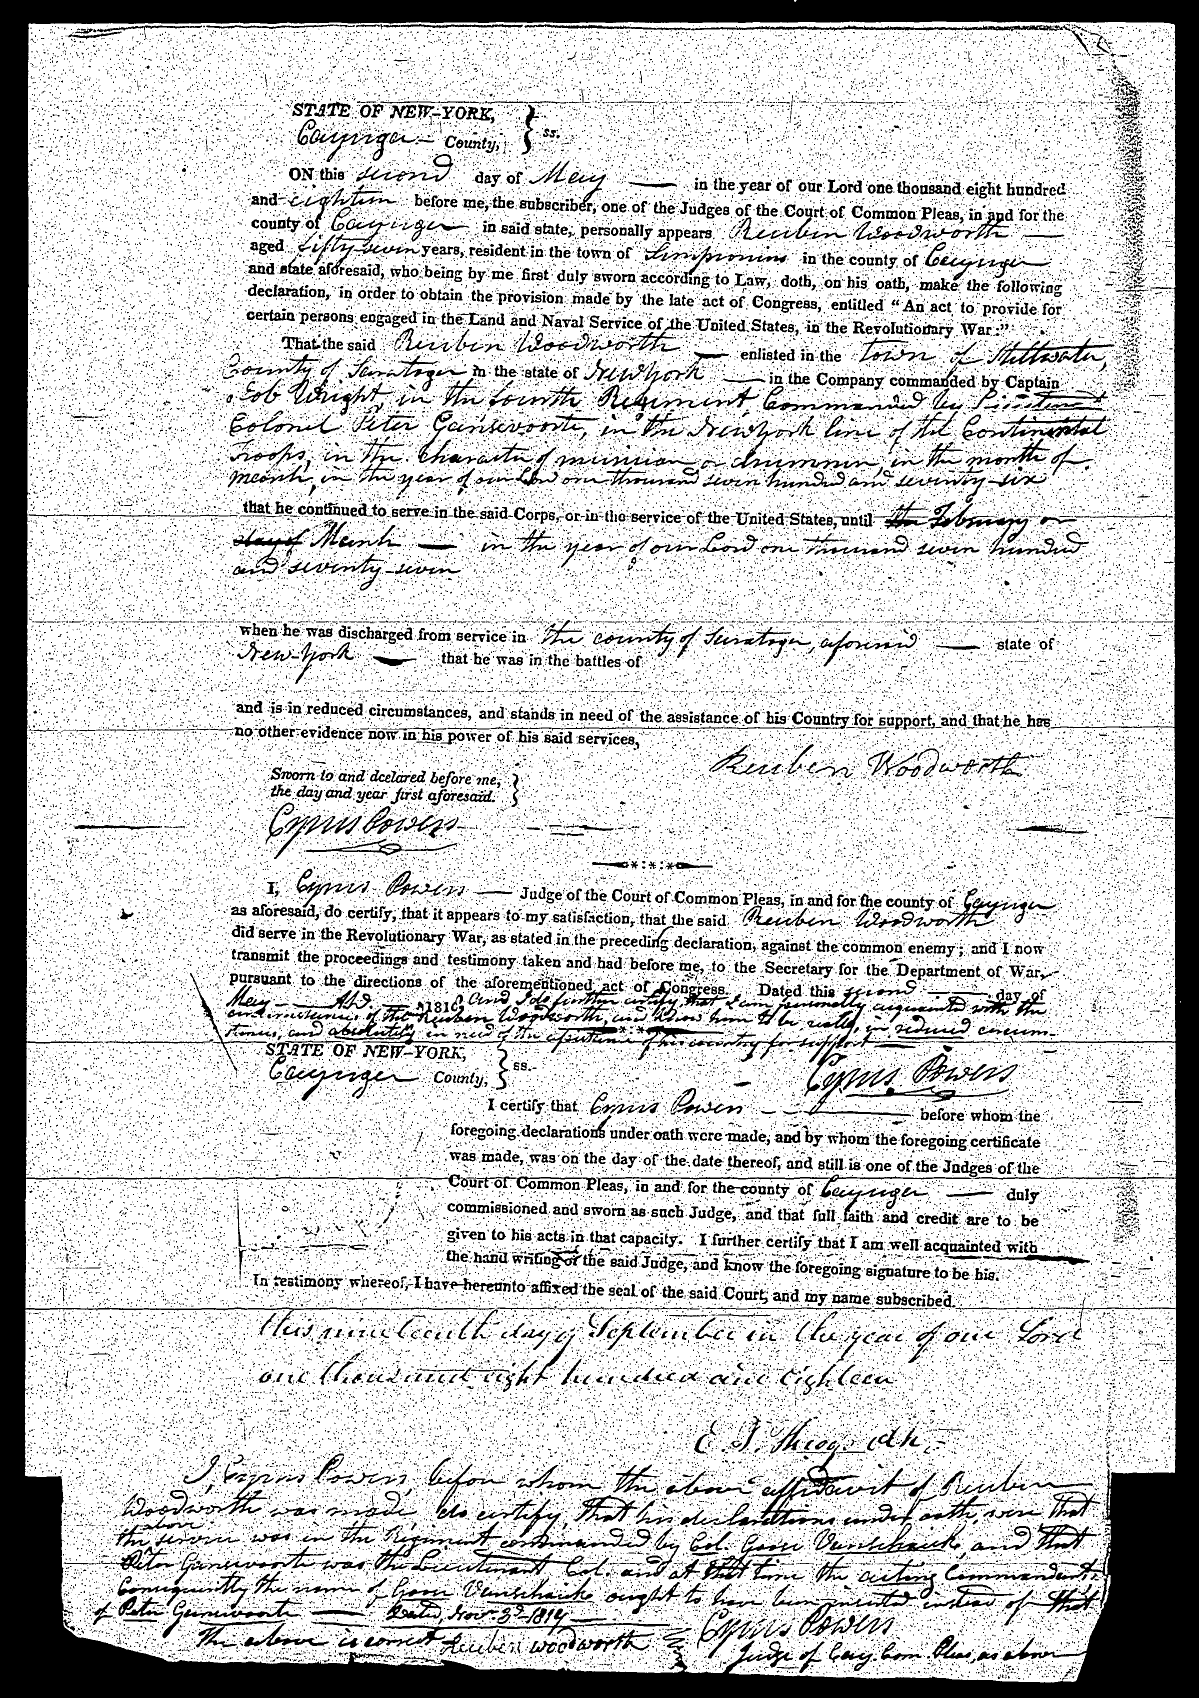 STATE OF NEW-YORK,
Cayuga County, } ss.
ON this second day of May in the year of our Lord one thousand eight hundred
and eighteen before me, the subscriber, one of the Judges of the Court of Common Pleas, in and for the
county of Cayuga in said state, personally appears Reuben Woodworth
aged fifty seven years, resident in the town of Sempronius in the county of Cayuga
and state aforesaid, who being by me first duly sworn according to Law, doth, on his oath, make the following
declaration, in order to obtain the provision made by the late act of Congress, entitled "An act to provide for
certain persons engaged in the Land and Naval Service of the United States, in the Revolutionary War:"
That the said Reuben Woodworth enlisted in the town of Stillwater,
County of Saratoga in the state of New York in the Company commanded by Captain
Job Wright, in the fourth Regiment, Commanded by Lieutenant
Colonel Peter Gansevoorte, in the New York line of the Continental
Troops, in the character of musician or drummer, in the month of
March, in the year of our Lord one thousand seven hundred and seventy-six
that he continued to serve in the said Corps, or in the service of the United States, until the February or
day of March in the year of our Lord one thousand seven hundred
and seventy-seven
when he was discharged from service in the county of Saratoga, aforesaid state of
New-York that he was in the battles of
and is in reduced circumstances, and stands in need of the assistance of his Country for support, and that he has
no other evidence now in his power of his said services,
Reuben Woodworth
Sworn to and declared before me,
the day and year first aforesaid. }
Cyrus Powers
I, Cyrus Powers Judge of the Court of Common Pleas, in and for the county of Cayuga
as aforesaid, do certify, that it appears to my satisfaction, that the said Reuben Woodworth
did serve in the Revolutionary War, as stated in the preceding declaration, against the common enemy; and I now
transmit the proceedings and testimony taken and had before me, to the Secretary for the Department of War,
pursuant to the directions of the aforementioned act of Congress. Dated this second day of
May A.D. 1818. And I do further certify that I am personally acquainted with the
circumstances of the Reuben Woodworth, and know him to be really in reduced circum-
stances, and absolutely in need of the assistance of his country for support
Cyrus Powers
STATE OF NEW-YORK,
Cayuga County, } ss.
I certify that Cyrus Powers before whom the
foregoing declarations under oath were made, and by whom the foregoing certificate
was made, was on the day of the date thereof, and still is one of the Judges of the
Court of Common Pleas, in and for the county of Cayuga duly
commissioned and sworn as such Judge, and that full faith and credit are to be
given to his acts in that capacity. I further certify that I am well acquainted with
the hand writing of the said Judge, and know the foregoing signature to be his.
In testimony whereof, I have hereunto affixed the seal of the said Court, and my name subscribed.
this nineteenth day of September in the year of our Lord
one thousand eight hundred and eighteen
E. T. Throop clk
I, Cyrus Powers, before whom the above affidavit of Reuben
Woodworth was made, do certify, that his declarations under oath, were that
the above service was in the Regiment commanded by Col. Goose Vanschaick, and that
Peter Gansevoorte was the Lieutenant Col. and at that time the acting Commandant.
Consequently the name of Goose Vanschaick ought to have been inserted instead of that
of Peter Gansevoorte Dated, Novr. 3d 1819
Cyrus Powers
The above is correct Reuben woodworth
Judge of Cay. Com. Pleas, as above